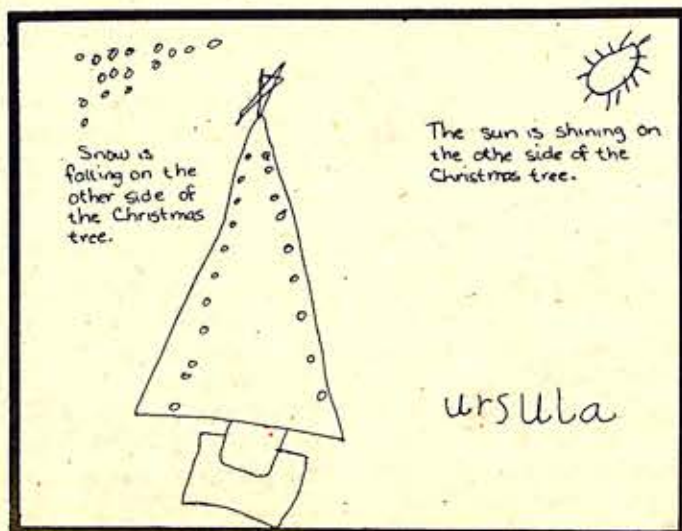 Snow is
falling on the
other side of
the Christmas
tree.
The sun is shining on
the othe side of the
Christmas tree.
ursula